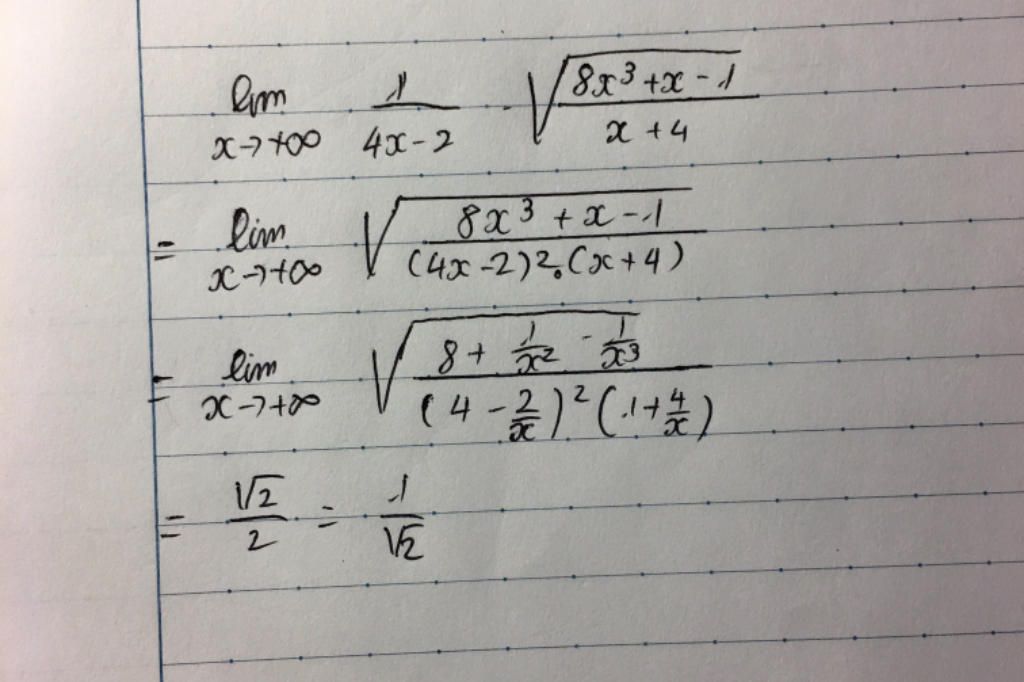 lim x→+∞ 1/(4x-2) · √((8x³+x-1)/(x+4))
= lim x→+∞ √((8x³+x-1)/((4x-2)².(x+4)))
= lim x→+∞ √((8+1/x²-1/x³)/((4-2/x)²(1+4/x)))
= √2/2 = 1/√2